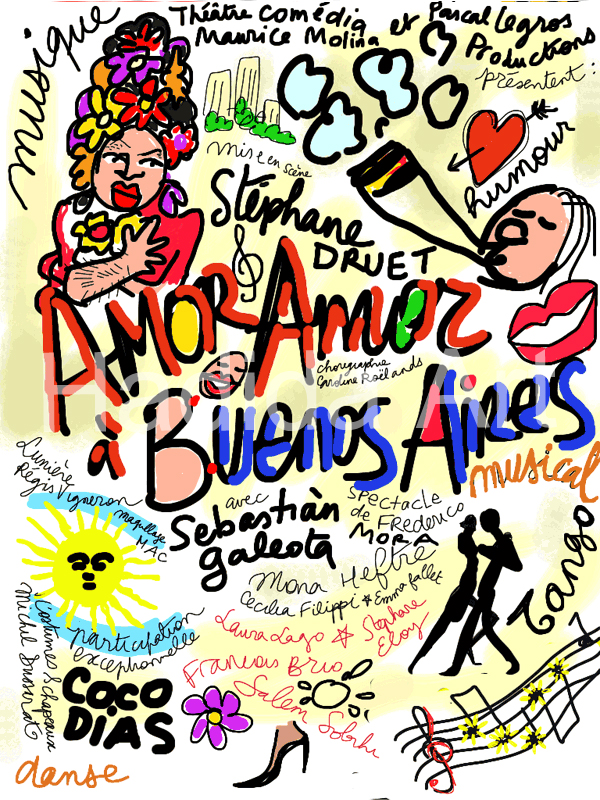 musique
Théâtre comédia et Pascal Legros
Maurice Molina Productions
présentent :
mise en scène
Stéphane
DRUET
humour
AMOR AMOR
choregraphie
Caroline Roëlands
à BUENOS AIRES
musical
Lumière
Régis Vigneron
maquillage
MAC
avec
Sebastiàn
galeota
spectacle
de Frederico
MORA
Mona Heftre
Cecilia Filippi ★ Emma fallet
Laura Lago ★ Stephane
Eloy
Francois Brio
Salem Sobihi
Tango
Costumes & chapeaux
Michel Dussarat
participation
exceptionnelle
COCO
DIAS
danse
Hafida Art